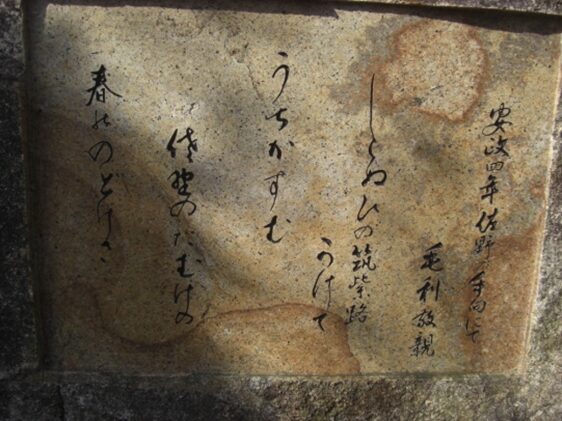 安政四年佐野の手向にて
毛利敬親
しらぬひの筑紫路
かけて
うちかすむ
佐野のたむけの
春のゝどけさ